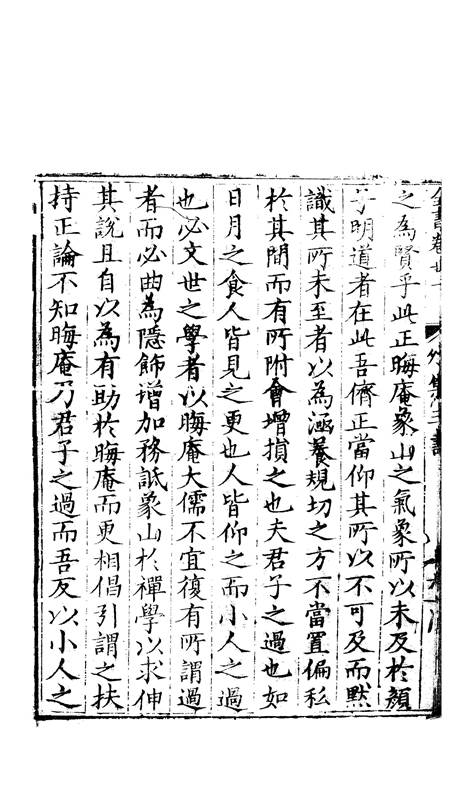 全書卷廿一 外集三 書
之為賢乎此正晦庵象山之氣象所以未及於顏
子明道者在此吾儕正當仰其所以不可及而默
識其所未至者以為涵養規切之方不當置偏私
於其間而有所附會增損之也夫君子之過也如
日月之食人皆見之更也人皆仰之而小人之過
也必文世之學者以晦庵大儒不宜復有所謂過
者而必曲為隱飾增加務詆象山於禪學以求伸
其說且自以為有助於晦庵而更相倡引謂之扶
持正論不知晦庵乃君子之過而吾反以小人之